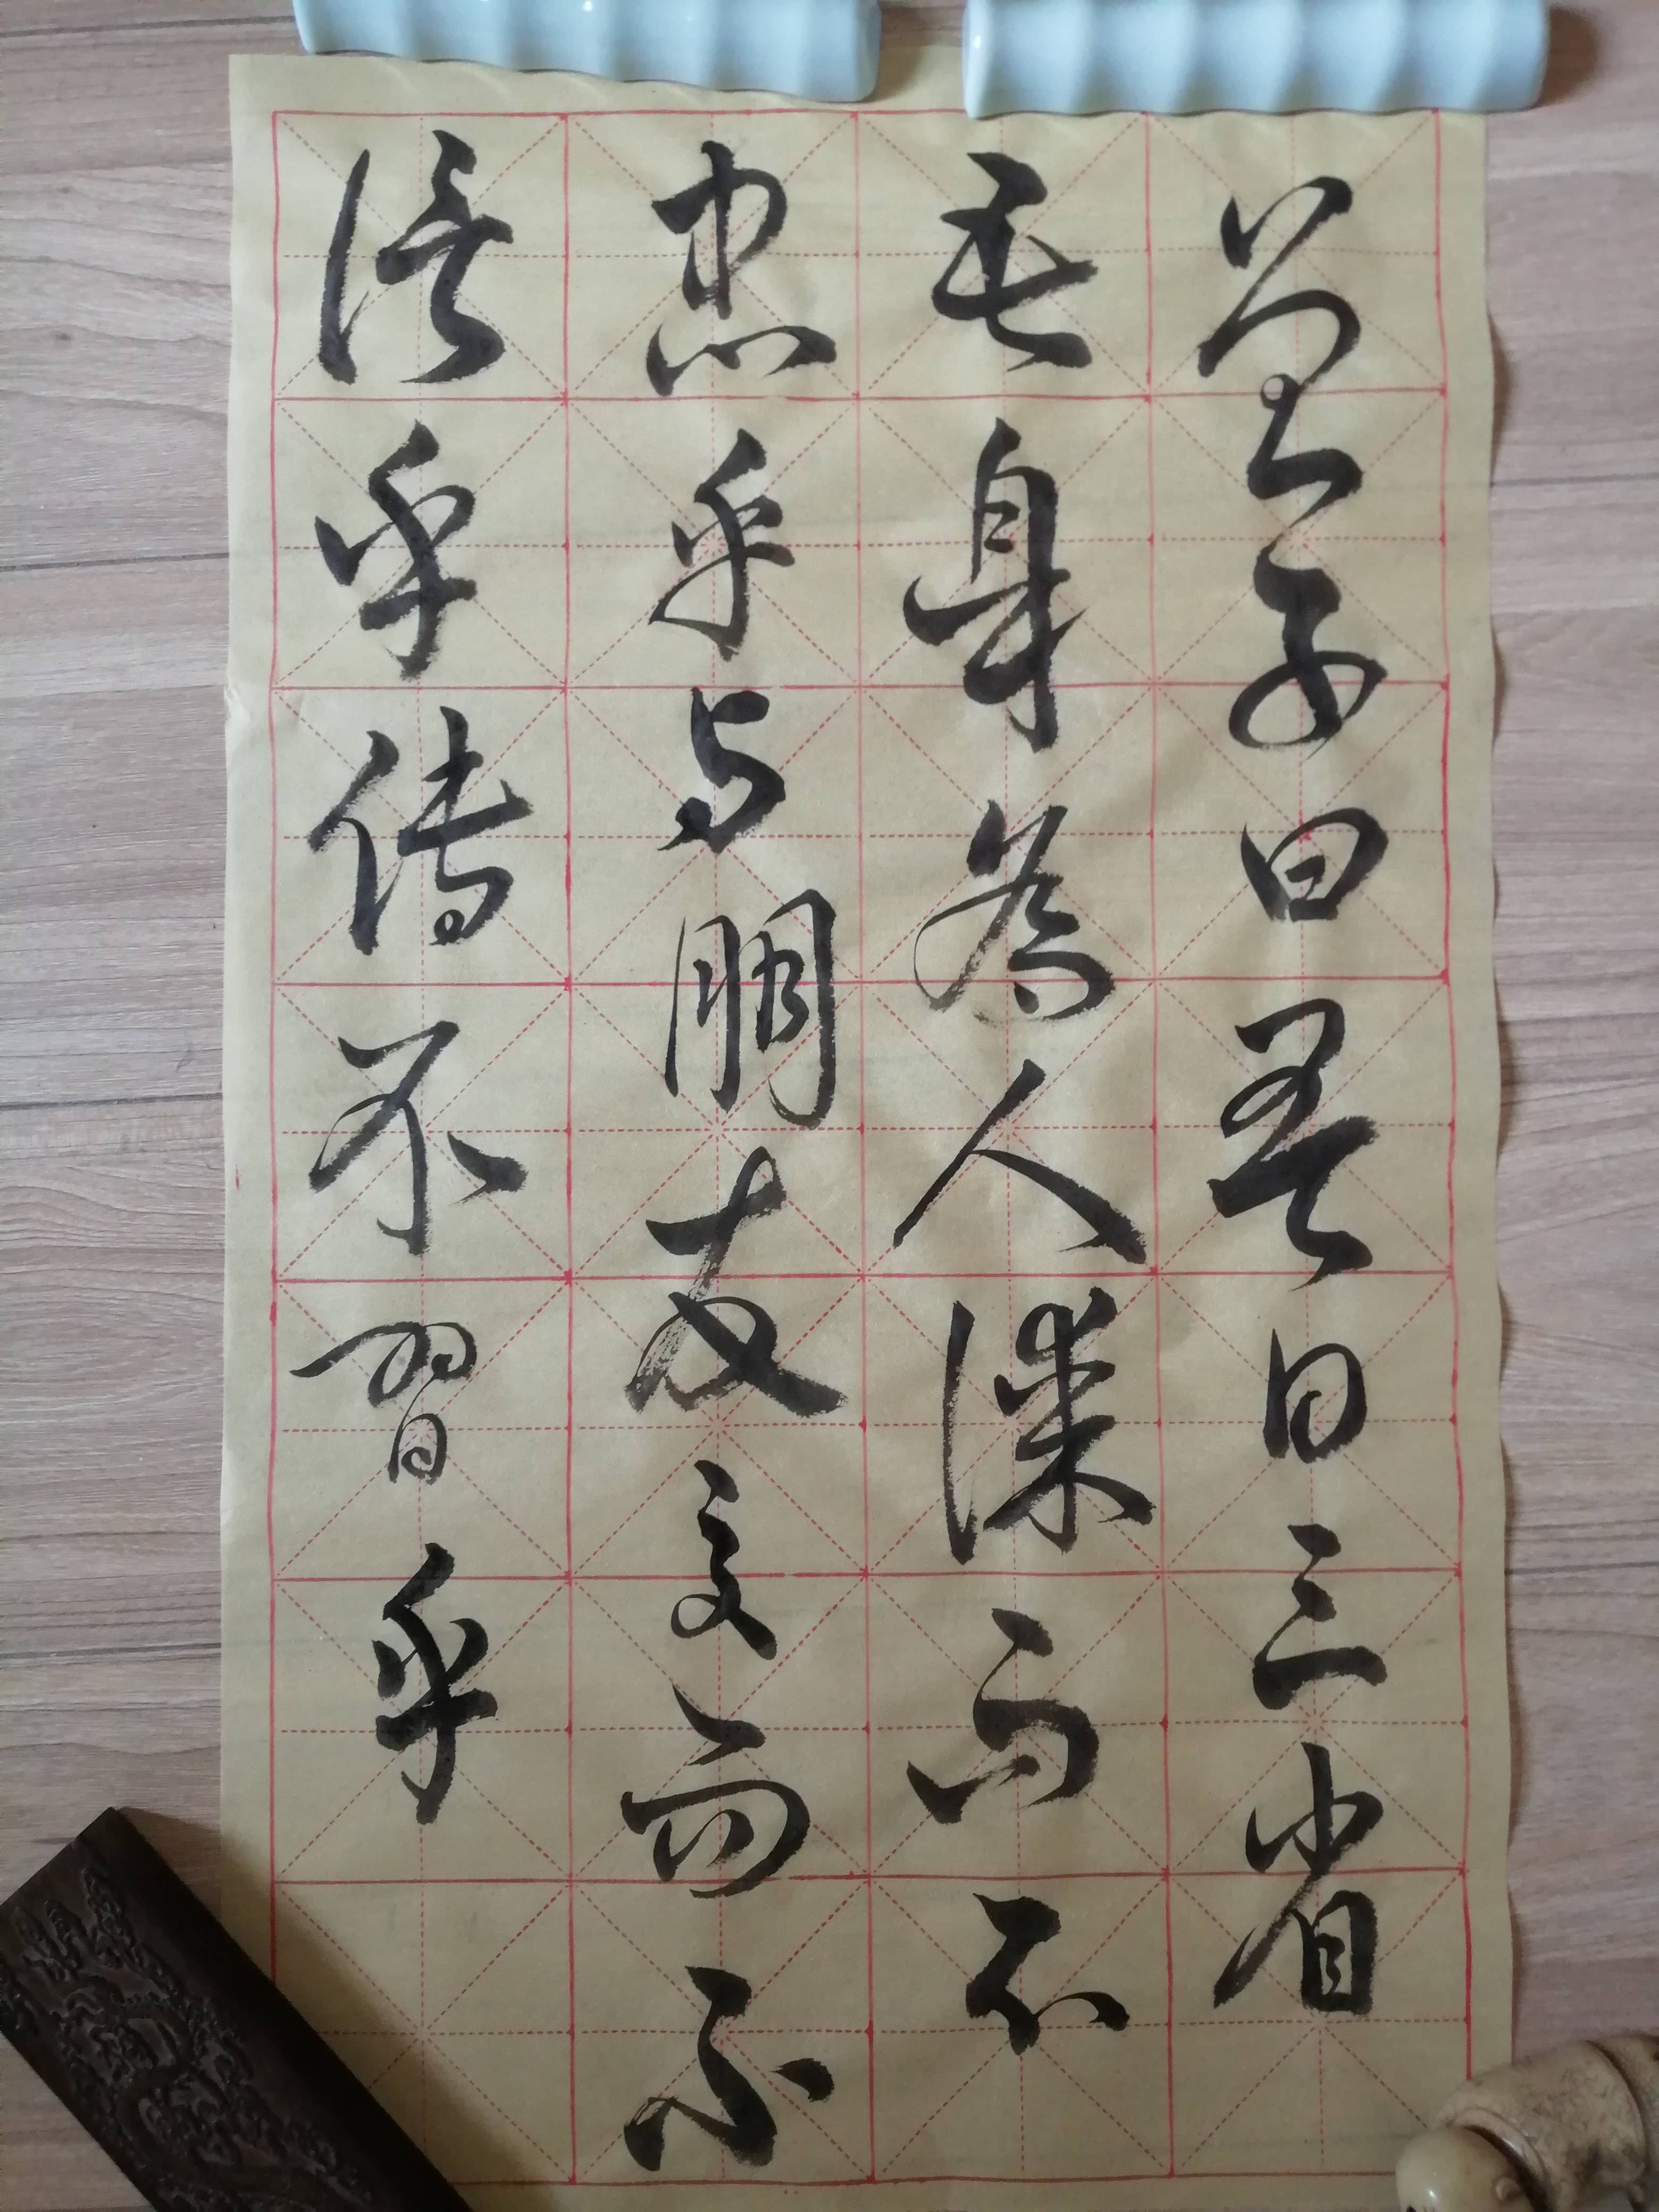 曾子曰吾日三省
吾身为人谋而不
忠乎与朋友交而不
信乎传不习乎